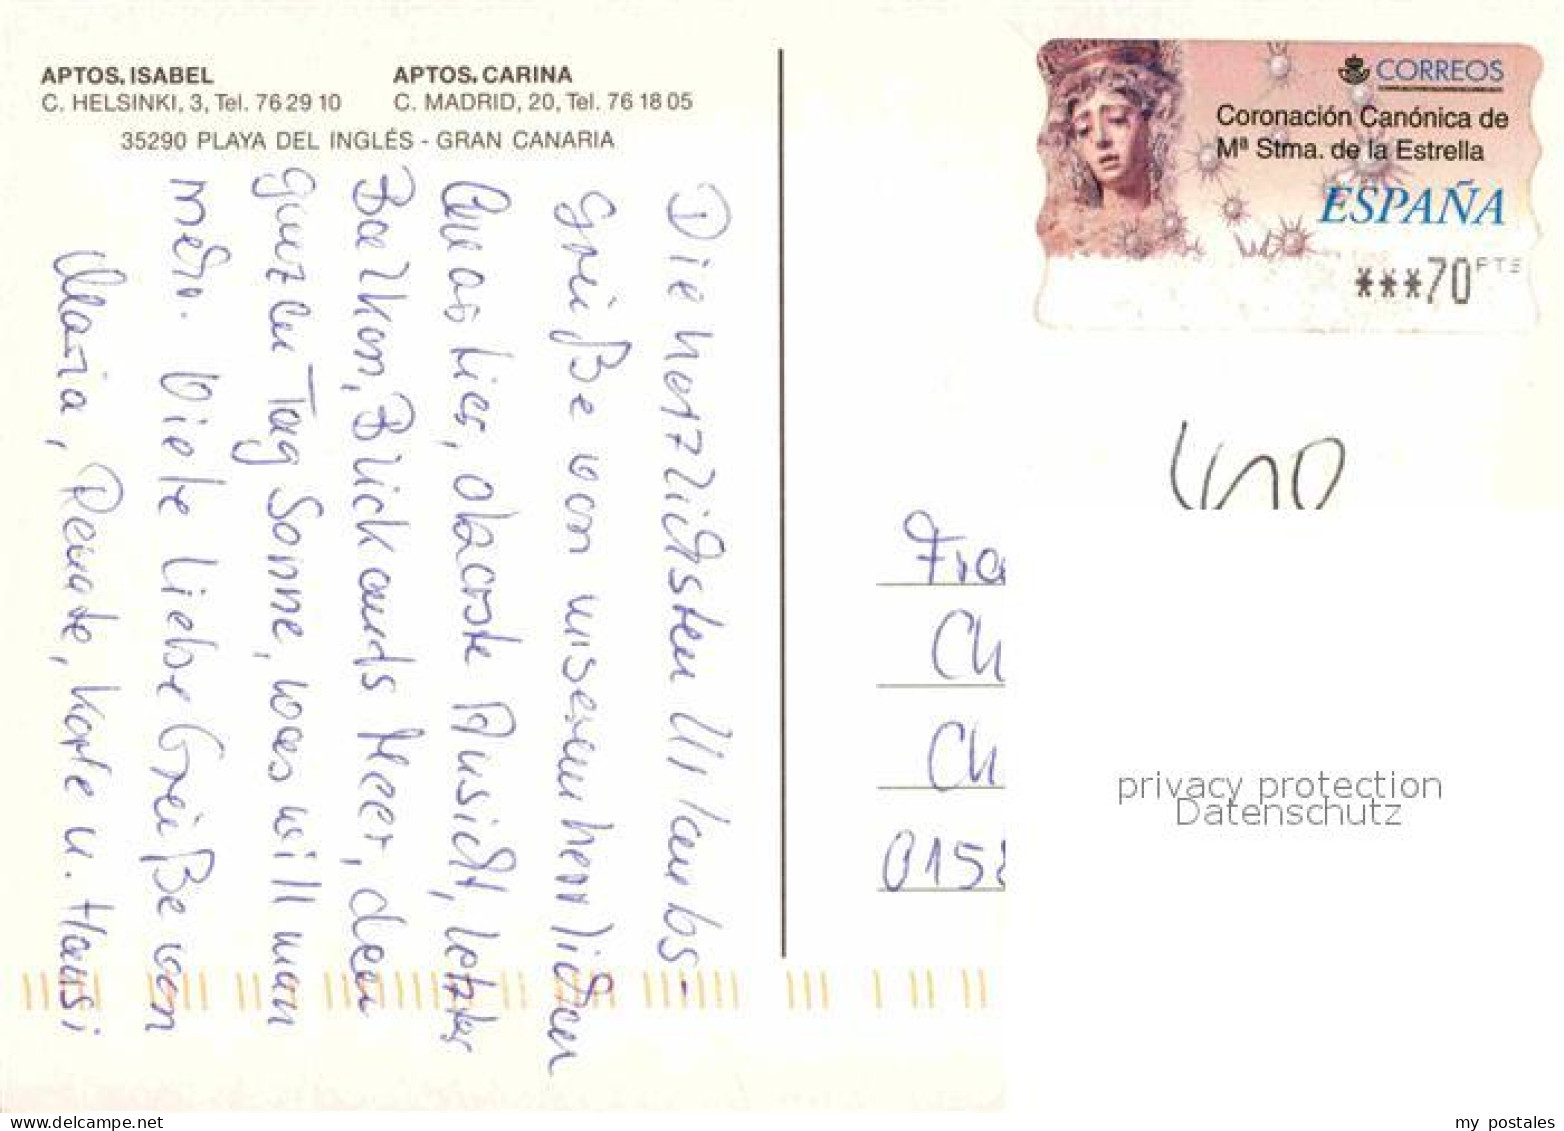 APTOS. ISABEL
C. HELSINKI, 3, Tel. 76 29 10
APTOS. CARINA
C. MADRID, 20, Tel. 76 18 05
35290 PLAYA DEL INGLÉS - GRAN CANARIA
Die herzlichsten Urlaubs-
grüße von unserem herrlichen
hier, oberste Aussicht, letztes
Balkon, Blick aufs Meer, den
ganzen Tag Sonne, was will man
mehr. Viele liebe Grüße von
Maria, Renate, Karle u. Hansi
CORREOS
Coronación Canónica de
Mª Stma. de la Estrella
ESPAÑA
***70 PTS
Fra
Ch
Ch
015
privacy protection
Datenschutz
www.delcampe.net
my postales